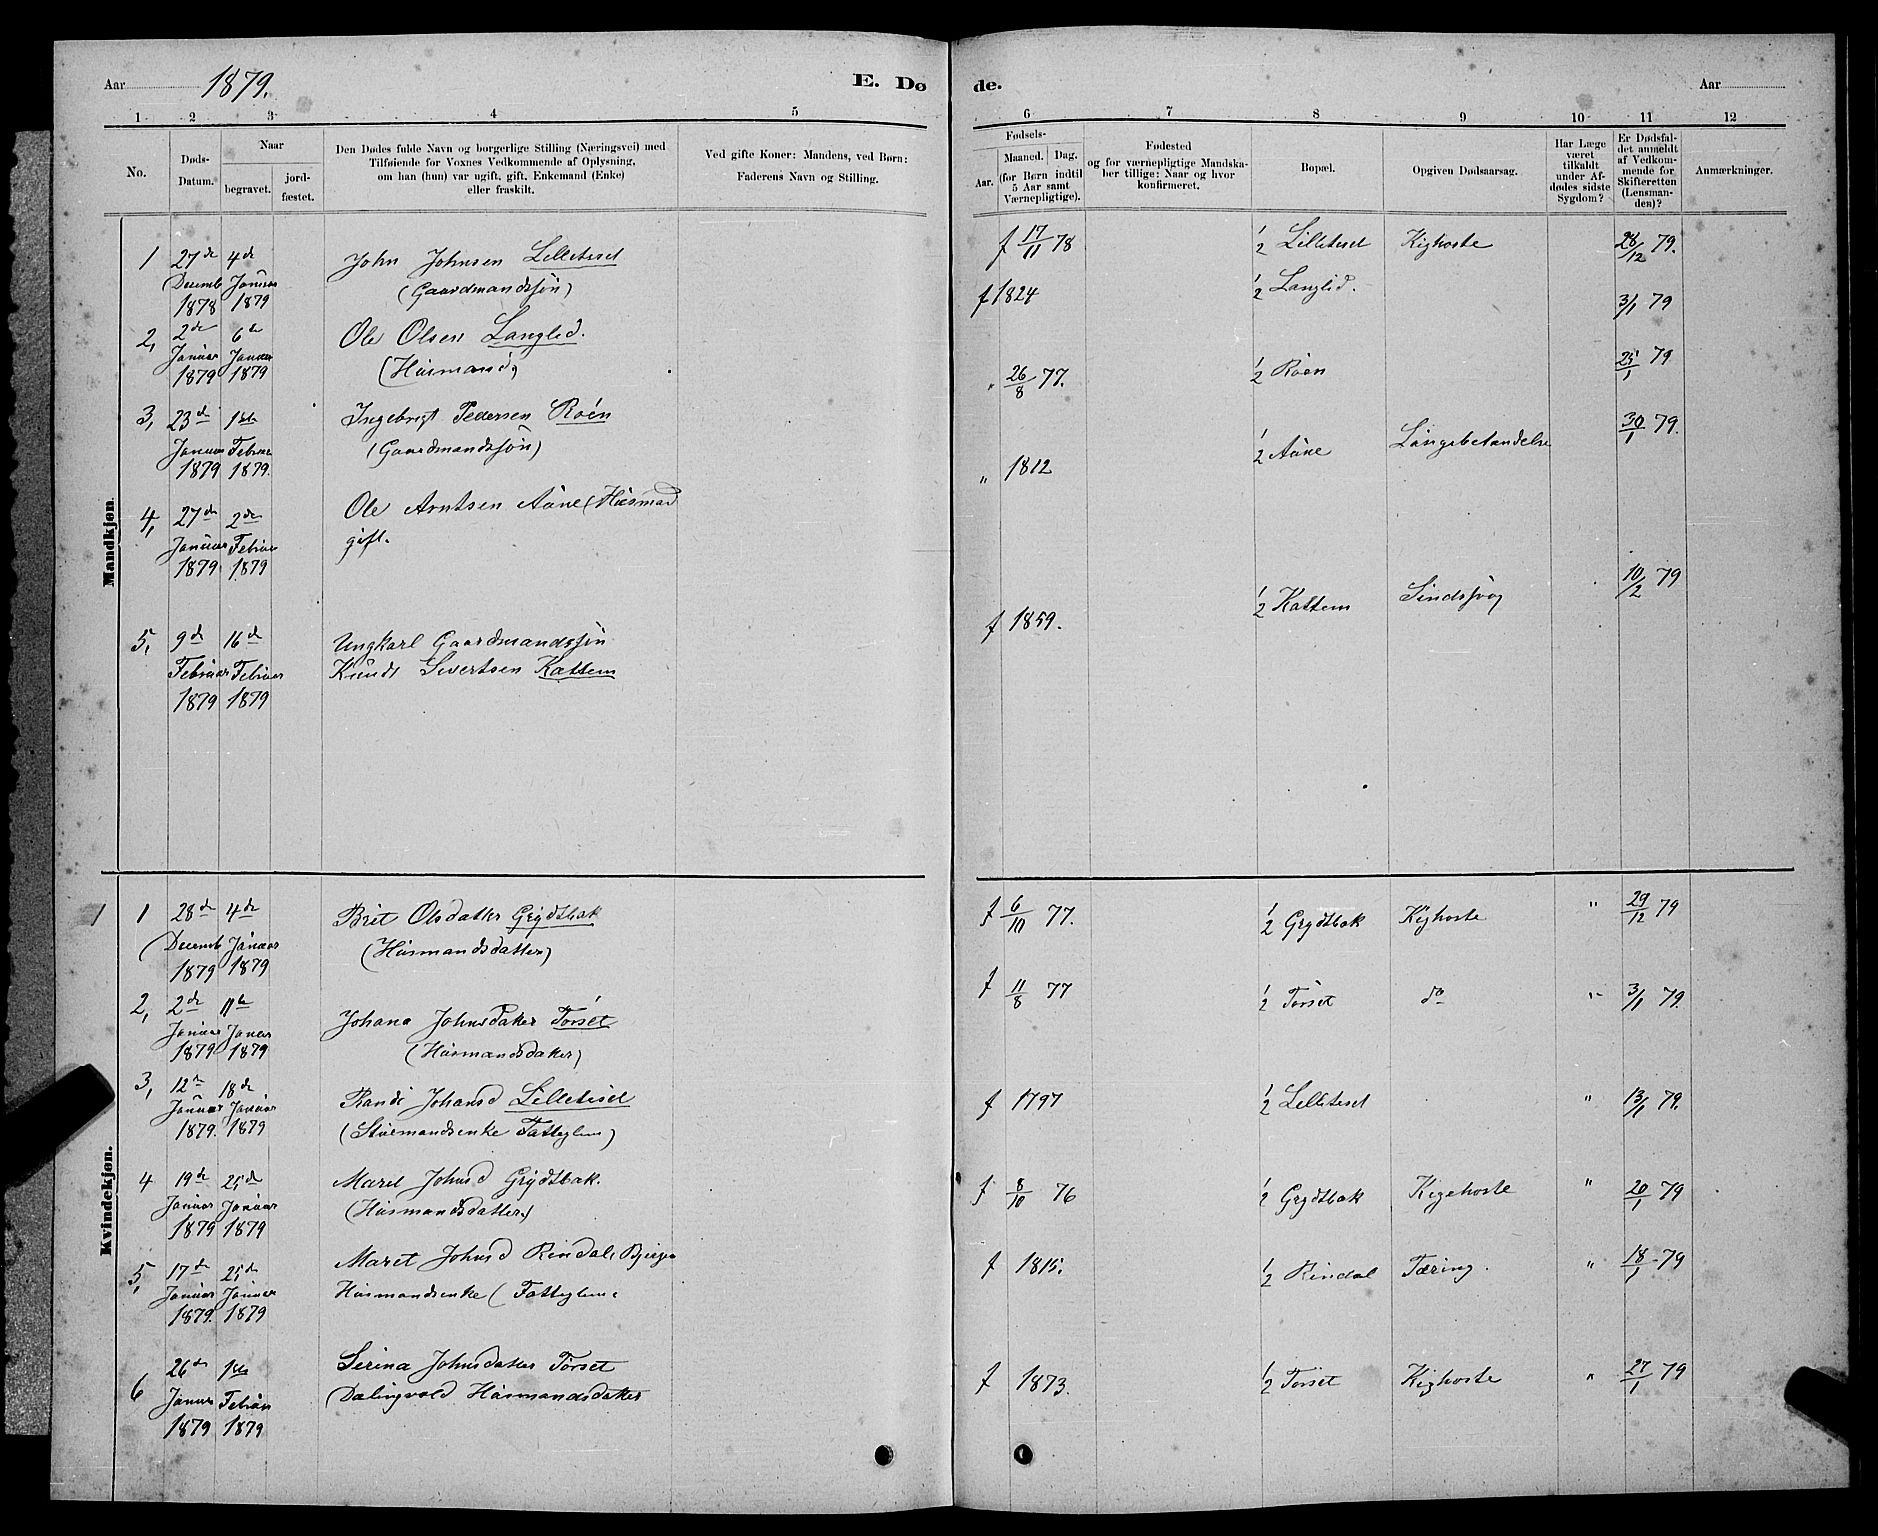 Aar 1879. E. Dø
1 2 3 4 5
No.
Døds-
Datum.
Naar
begravet.
jord-
fæstet.
Den Dødes fulde Navn og borgerlige Stilling (Næringsvei) med
Tilføiende for Voxnes Vedkommende af Oplysning,
om han (hun) var ugift, gift, Enkemand (Enke)
eller fraskilt.
Ved gifte Koner: Mandens, ved Børn:
Faderens Navn og Stilling.
Mandkjøn.
1 27de 4de John Johnsen Lilleteset
Decemb Januar (Gaardmandssøn)
1878 1879
2, 2de 6te Ole Olsen Langlid.
Januar Januar (Husmand)
1879 1879
3, 23de 1ste Ingebrigt Pedersen Roen
Januar Februar (Gaardmandssøn)
1879 1879.
4, 27de 2de Ole Arntsen Aune (Husmand
Januar Februar gift.
1879 1879
5, 9de 16de Ungkarl Gaardmandssøn
Februar Februar Knudt Sivertsen Kattem
1879 1879
Kvindekjøn.
1 1 28de 4de Brit Olsdatter Grydtbak
Decemb Januar (Husmandsdatter)
1879 1879
2, 2de 11te Johana Johnsdatter Torset
Januar Januar (Husmandsdatter)
1879 1879
3, 12te 18de Randi Johansd Lilleteset
Januar Januar (Stuemandsenke Fatteglem)
1879. 1879
4 19de 25de Marit Johnsd Grydtbak.
Januar Januar (Husmandsdatter)
1879 1879
5, 17de 25de Marit Johnsd Rindal
Januar Januar Husmandsenke (Fatteglem
1879. 1879
6 26de 1ste Serina Johnsdatter Torset
Januar Februar Husmandsdatter
1879 1879
de. Aar
6 7 8 9 10 11 12
Fødsels-
Aar.
Maaned. Dag.
(for Børn indtil
5 Aar samt
Værnepligtige).
Fødested
og for værnepligtige Mandska-
ber tillige: Naar og hvor
konfirmeret.
Bopæl.
Opgiven Dødsaarsag.
Har Læge
været
tilkaldt
under Af-
dødes sidste
Sygdom?
Er Dødsfal-
det anmeldt
af Vedkom-
mende for
Skifteretten
(Lensman-
den)?
Anmærkninger.
f 17/11 78 1/2 Lilleteset Kighoste 28/12 79.
f 1824 1/2 Langlid. 3/1 79
" 26/8 77. 1/2 Roen 25/1 79
" 1812 1/2 Aune Lungebetændelse 30/1 79.
f 1859. 1/2 Kattem Sindssvag 10/2 79
f 6/10 77. 1/2 Grydtbak Kighoste " 29/12 79
f 11/8 77 1/2 Torset do " 3/1 79.
f 1797 1/2 Lilleteset " 13/1 79.
f 8/10 76 1/2 Grydtbak Kigehoste " 20/1 79
f 1815. 1/2 Rindal Tæring. " 18/1 79
f 1873. 1/2 Torset Kighoste " 27/1 79